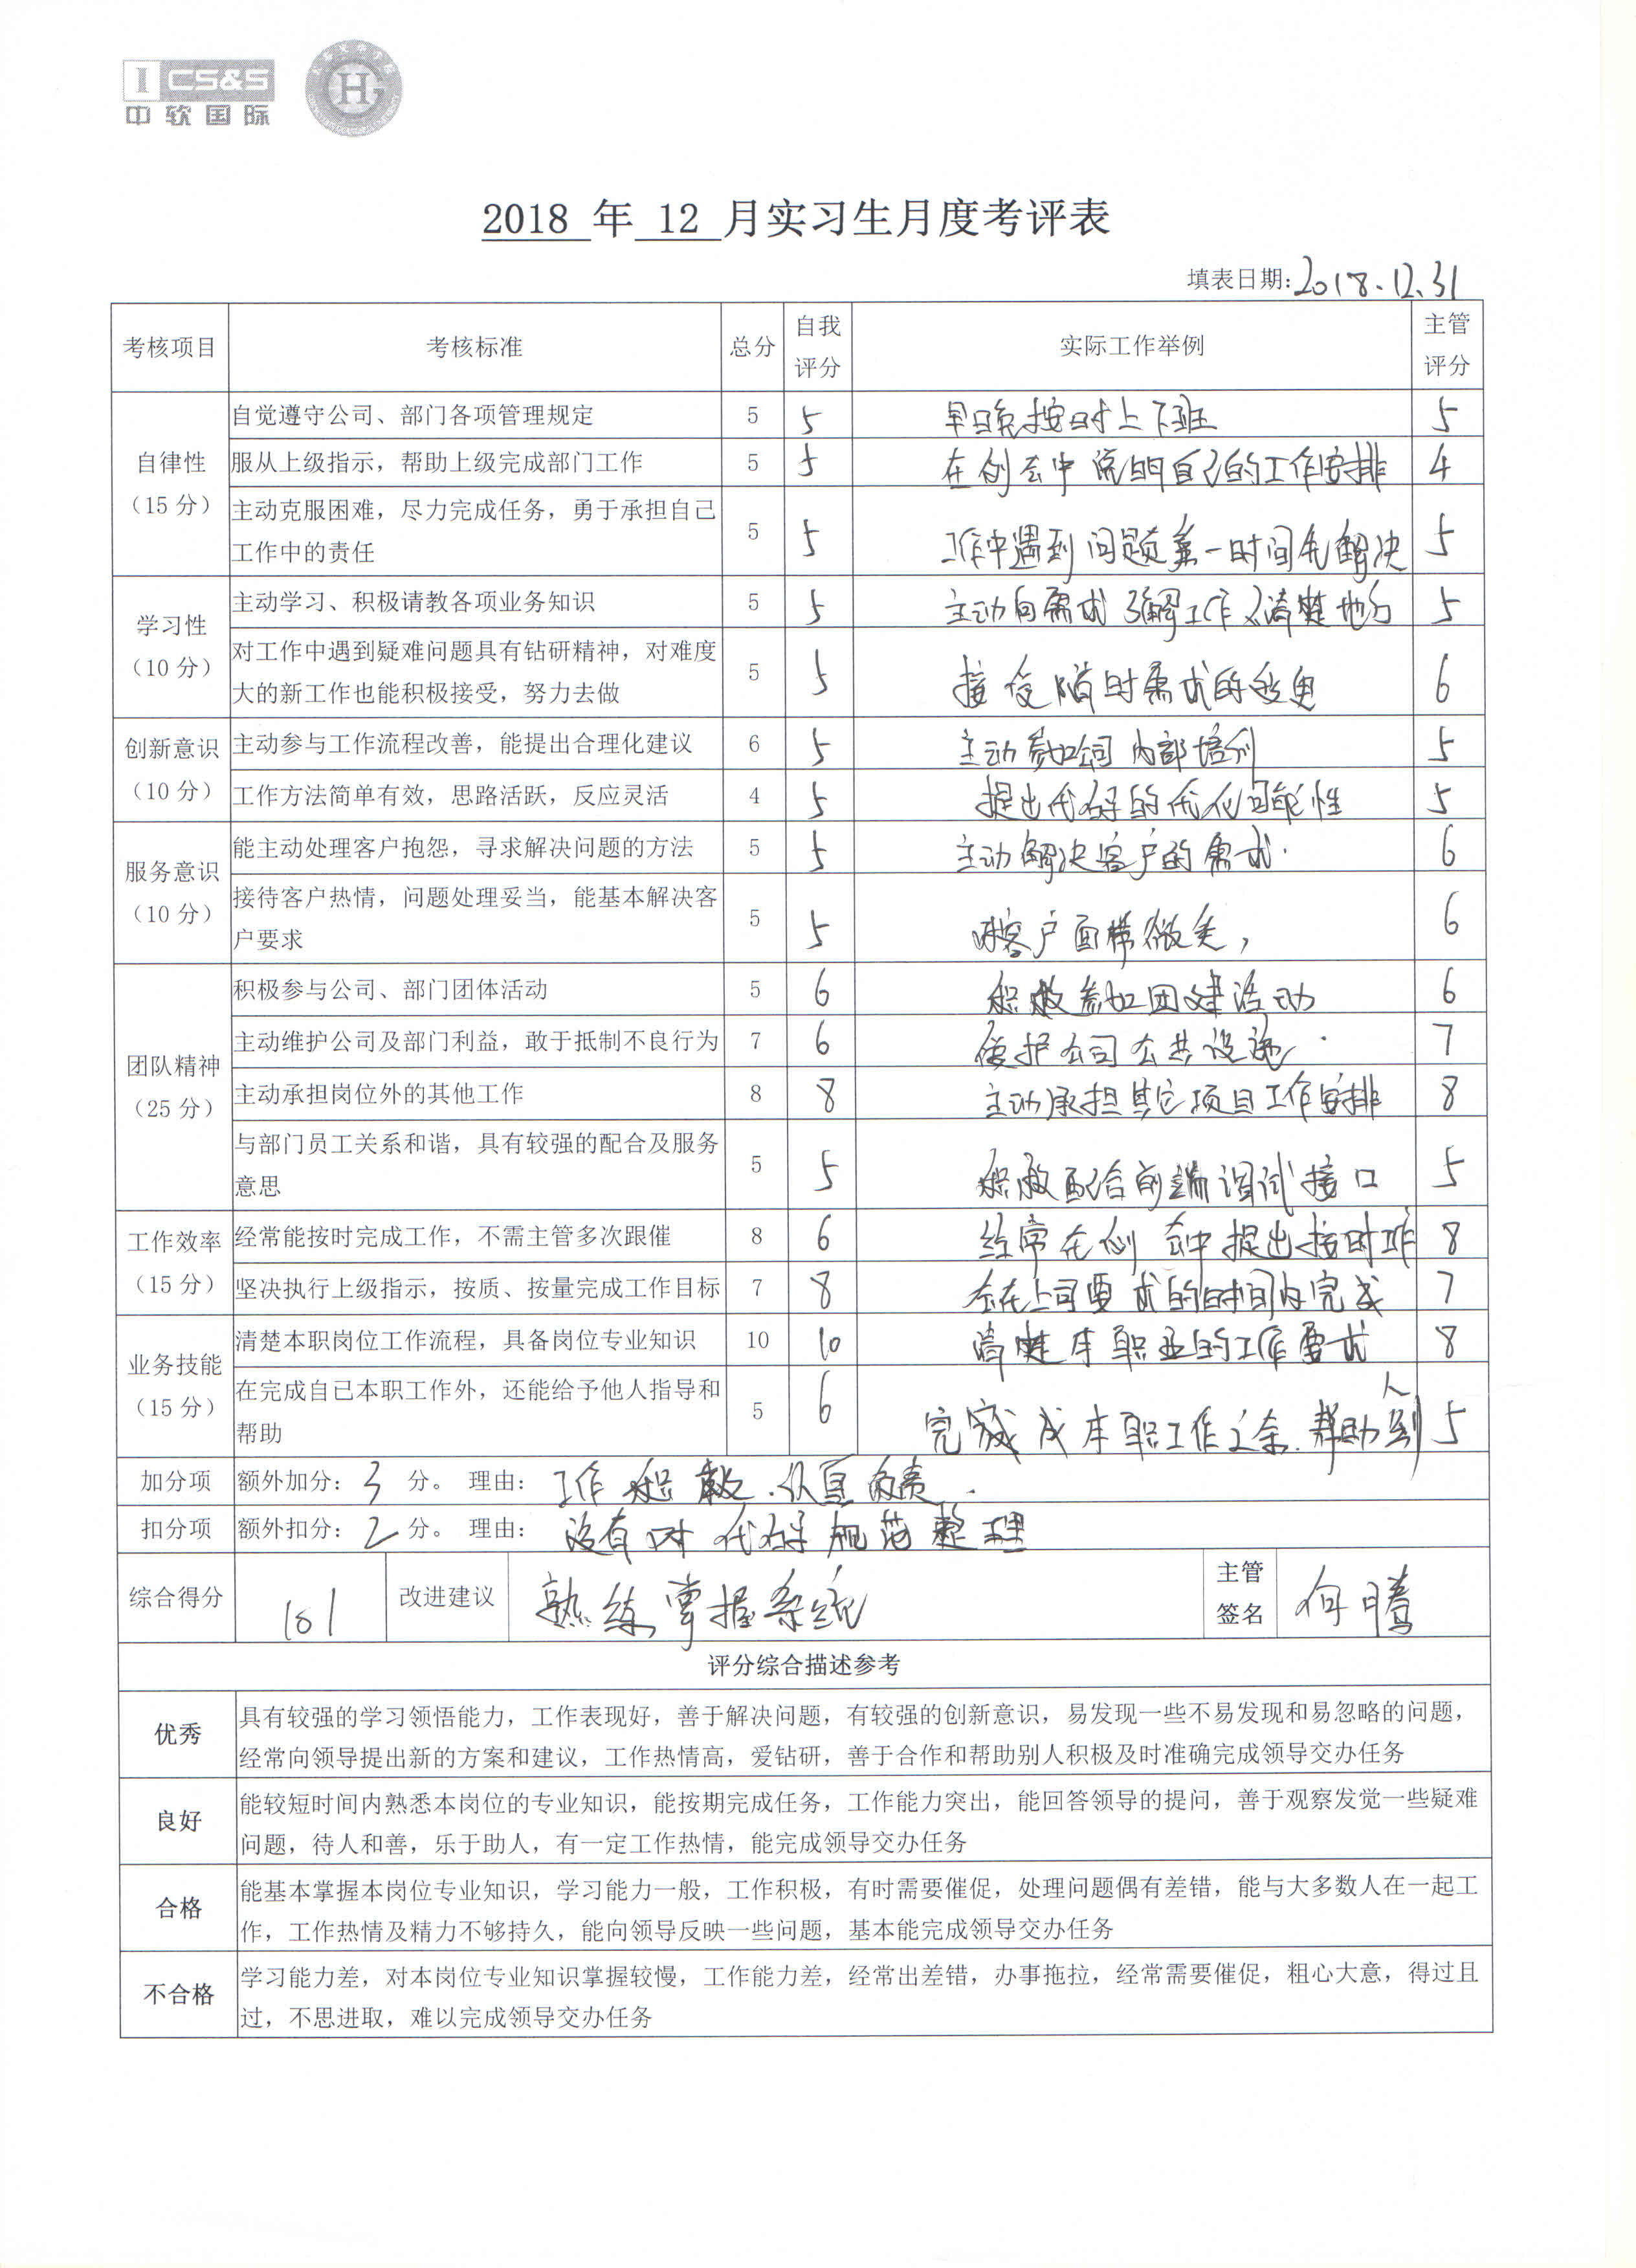 I CS&S
中软国际
H
2018 年 12 月实习生月度考评表
填表日期:2018.12.31
考核项目 考核标准 总分 自我评分 实际工作举例 主管评分
自律性
(15分)
自觉遵守公司、部门各项管理规定 5 5 早晚按时上下班 5
服从上级指示，帮助上级完成部门工作 5 5 在例会中说明自己的工作安排 4
主动克服困难，尽力完成任务，勇于承担自己
工作中的责任 5 5 工作中遇到问题第一时间先解决 5
学习性
(10分)
主动学习、积极请教各项业务知识 5 5 主动向需求了解工作不清楚地方 5
对工作中遇到疑难问题具有钻研精神，对难度
大的新工作也能积极接受，努力去做 5 5 接受随时需求的变更 6
创新意识
(10分)
主动参与工作流程改善，能提出合理化建议 6 5 主动参加公司内部培训 5
工作方法简单有效，思路活跃，反应灵活 4 5 提出代码的优化可能性 5
服务意识
(10分)
能主动处理客户抱怨，寻求解决问题的方法 5 5 主动解决客户的需求. 6
接待客户热情，问题处理妥当，能基本解决客
户要求 5 5 对客户面带微笑， 6
团队精神
(25分)
积极参与公司、部门团体活动 5 6 积极参加团建活动 6
主动维护公司及部门利益，敢于抵制不良行为 7 6 爱护公司公共设施 7
主动承担岗位外的其他工作 8 8 主动承担其它项目工作安排 8
与部门员工关系和谐，具有较强的配合及服务
意思 5 5 积极配合前端调试接口 5
工作效率
(15分)
经常能按时完成工作，不需主管多次跟催 8 6 经常在例会中提出按时工作 8
坚决执行上级指示，按质、按量完成工作目标 7 8 会在上司要求的时间内完成 7
业务技能
(15分)
清楚本职岗位工作流程，具备岗位专业知识 10 10 清楚本职业的工作要求 8
在完成自己本职工作外，还能给予他人指导和
帮助 5 6 完成本职工作之余.帮助到人 5
加分项 额外加分: 3 分。 理由: 工作积极.认真负责.
扣分项 额外扣分: 2 分。 理由: 没有对代码规范整理
综合得分 101 改进建议 熟练掌握系统 主管签名 何腾
评分综合描述参考
优秀
具有较强的学习领悟能力，工作表现好，善于解决问题，有较强的创新意识，易发现一些不易发现和易忽略的问题，
经常向领导提出新的方案和建议，工作热情高，爱钻研，善于合作和帮助别人积极及时准确完成领导交办任务
良好
能较短时间内熟悉本岗位的专业知识，能按期完成任务，工作能力突出，能回答领导的提问，善于观察发觉一些疑难
问题，待人和善，乐于助人，有一定工作热情，能完成领导交办任务
合格
能基本掌握本岗位专业知识，学习能力一般，工作积极，有时需要催促，处理问题偶有差错，能与大多数人在一起工
作，工作热情及精力不够持久，能向领导反映一些问题，基本能完成领导交办任务
不合格
学习能力差，对本岗位专业知识掌握较慢，工作能力差，经常出差错，办事拖拉，经常需要催促，粗心大意，得过且
过，不思进取，难以完成领导交办任务